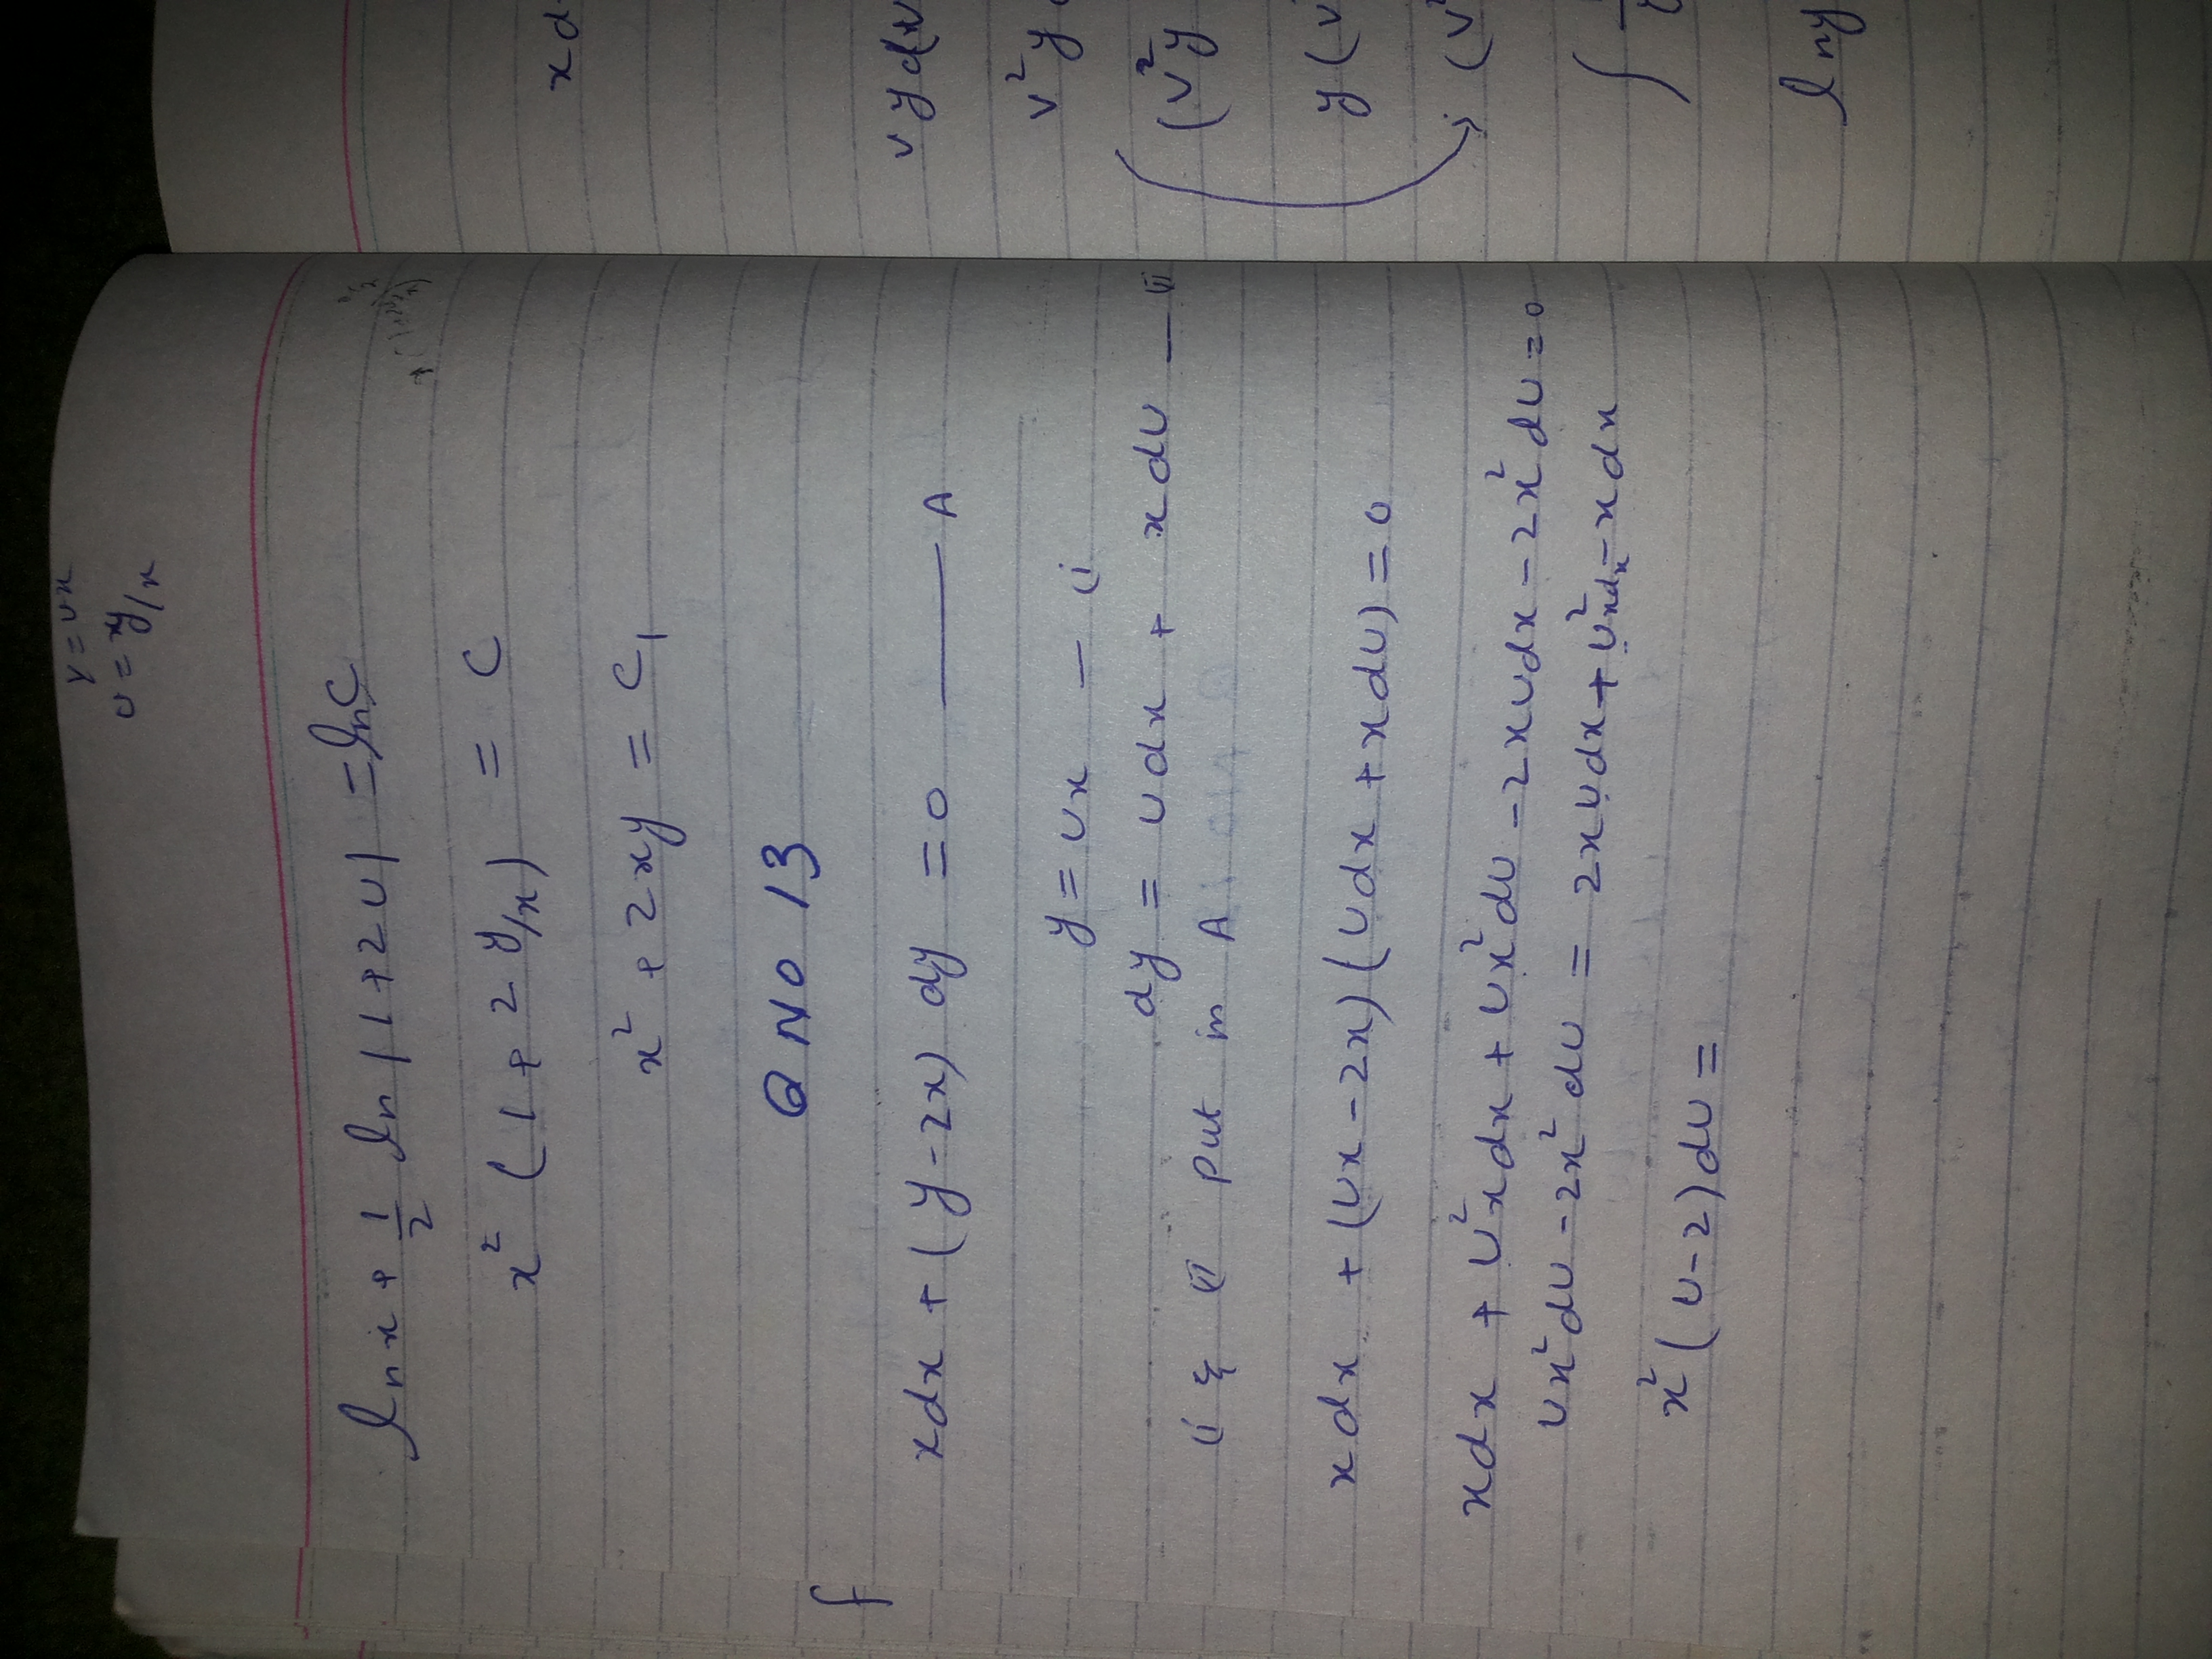 y = ux
u = y/x
ln x + 1/2 ln |1+2u| = ln c
x² (1 + 2 y/x) = c
x² + 2xy = c₁
Q NO 13
f
xdx + (y-2x) dy = 0 —— A
y = ux – (i
dy = udx + xdu – (ii
(i & (ii put in A
xdx + (ux-2x)(udx + xdu) = 0
xdx + u²xdx + ux²du - 2xudx - 2x²du = 0
ux²du - 2x²du = 2xudx + u²xdx - xdx
x²(u-2)du =
xd
vydv
v²y
(v²y
y(v
(v²
∫
ln y